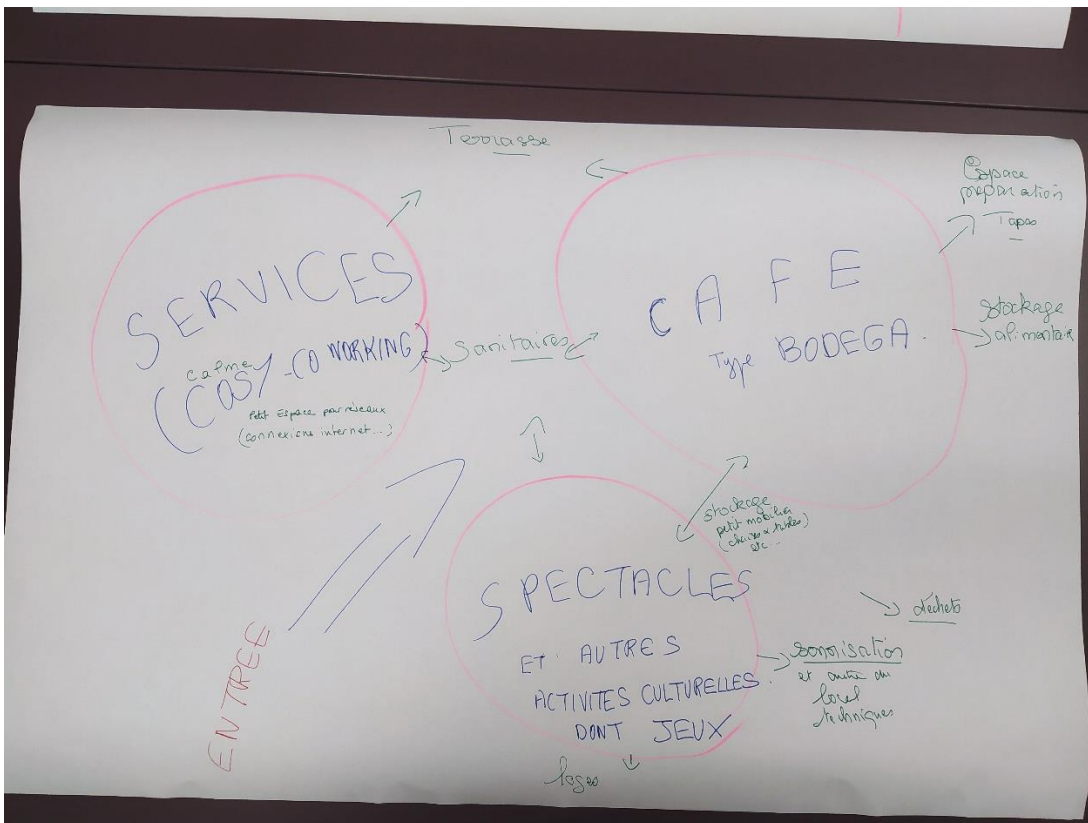 Terrasse
Espace
préparation
Tapas
SERVICES
calme
(COSY - CO WORKING)
Petit Espace pour réseaux
(connexions internet...)
Sanitaires
CAFE
Type BODEGA.
stockage
alimentaire
stockage
petit mobilier
(chaises & tables)
etc...
ENTREE
SPECTACLES
ET AUTRES
ACTIVITES CULTURELLES
DONT JEUX
déchets
sonorisation
et autre
local
techniques
loges